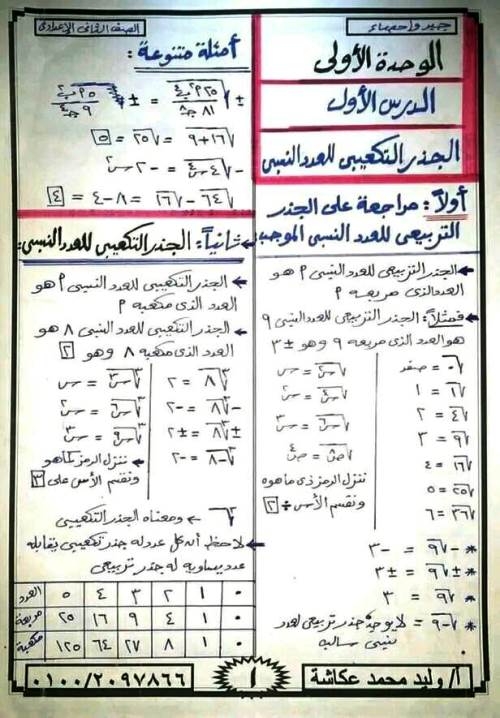 جبر وإحصاء
الصف الثانى الإعدادى
الوحدة الأولى
الدرس الأول
الجذر التكعيبى للعدد النسبى
أولاً: مراجعة على الجذر
التربيعى للعدد النسبى الموجب
الجذر التربيعى للعدد النسبى ٩ هو
العدد الذى مربعه ٩
فمثلاً: الجذر التربيعى للعدد النسبى ٩
هو العدد الذى مربعه ٩ وهو ± ٣
√٠ = صفر
√١ = ١
√٤ = ٢
√٩ = ٣
√١٦ = ٤
√٢٥ = ٥
√٣٦ = ٦
√س٢ = س
√س٤ = س٢
√س٦ = س٣
ننزل الرمز زى ماهوه
ونقسم الأس ÷ ٢
-√٩ = -٣
±√٩ = ±٣
√٩ = ٣
√-٩ = لا يوجد جذر تربيعى لعدد
نسبى سالب
أمثلة متنوعة:
√١٦+٩ = √٢٥ = ٥
-√٤س٤ = -٢س٢
√٦٤ - √١٦ = ٨-٤ = ٤
ثانياً: الجذر التكعيبى للعدد النسبى:
الجذر التكعيبى للعدد النسبى م هو
العدد الذى مكعبه م
الجذر التكعيبى للعدد النسبى ٨ هو
العدد الذى مكعبه ٨ وهو ٢
∛٨ = ٢
-∛٨ = -٢
∛-٨ = -٢
∛س٣ = س
∛س٦ = س٢
∛س٩ = س٣
ننزل الرمز كما هو
ونقسم الأس على ٣
∛ ← ومعناه الجذر التكعيبى
لاحظ أنه كل عدد له جذر تكعيبى يقابله
عدد يساويه له جذر تربيعى
العدد ٠ ١ ٢ ٣ ٤ ٥
مربعه ٠ ١ ٤ ٩ ١٦ ٢٥
مكعبه ٠ ١ ٨ ٢٧ ٦٤ ١٢٥
أ/ وليد محمد عكاشة
١
٠١٠٠/٢٠٩٧٨٦٦